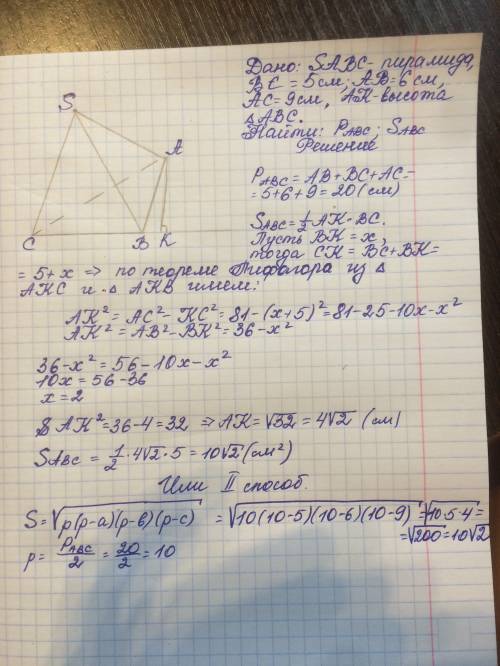 Дано: SABC- пирамида,
BC = 5 см; AB=6 см,
AC= 9 см, AK-высота
△ABC.
Найти: P_ABC; S_ABC
Решение
P_ABC = AB+BC+AC=
= 5+6+9=20 (см)
S_ABC = 1/2 AK·BC.
Пусть BK = x,
тогда CK = BC+BK=
S
A
C
B
K
= 5+x => по теореме Пифагора из △
AKC и △ AKB имеем:
AK² = AC² - KC² = 81-(x+5)² = 81-25-10x-x²
AK² = AB² - BK² = 36-x²
36-x² = 56-10x-x²
10x = 56-36
x = 2
AK² = 36-4 = 32 => AK = √32 = 4√2 (см)
S_ABC = 1/2 · 4√2 · 5 = 10√2 (см²)
Или II способ.
S = √p(p-a)(p-b)(p-c) = √10(10-5)(10-6)(10-9) = √10·5·4 =
= √200 = 10√2
p = P_ABC/2 = 20/2 = 10